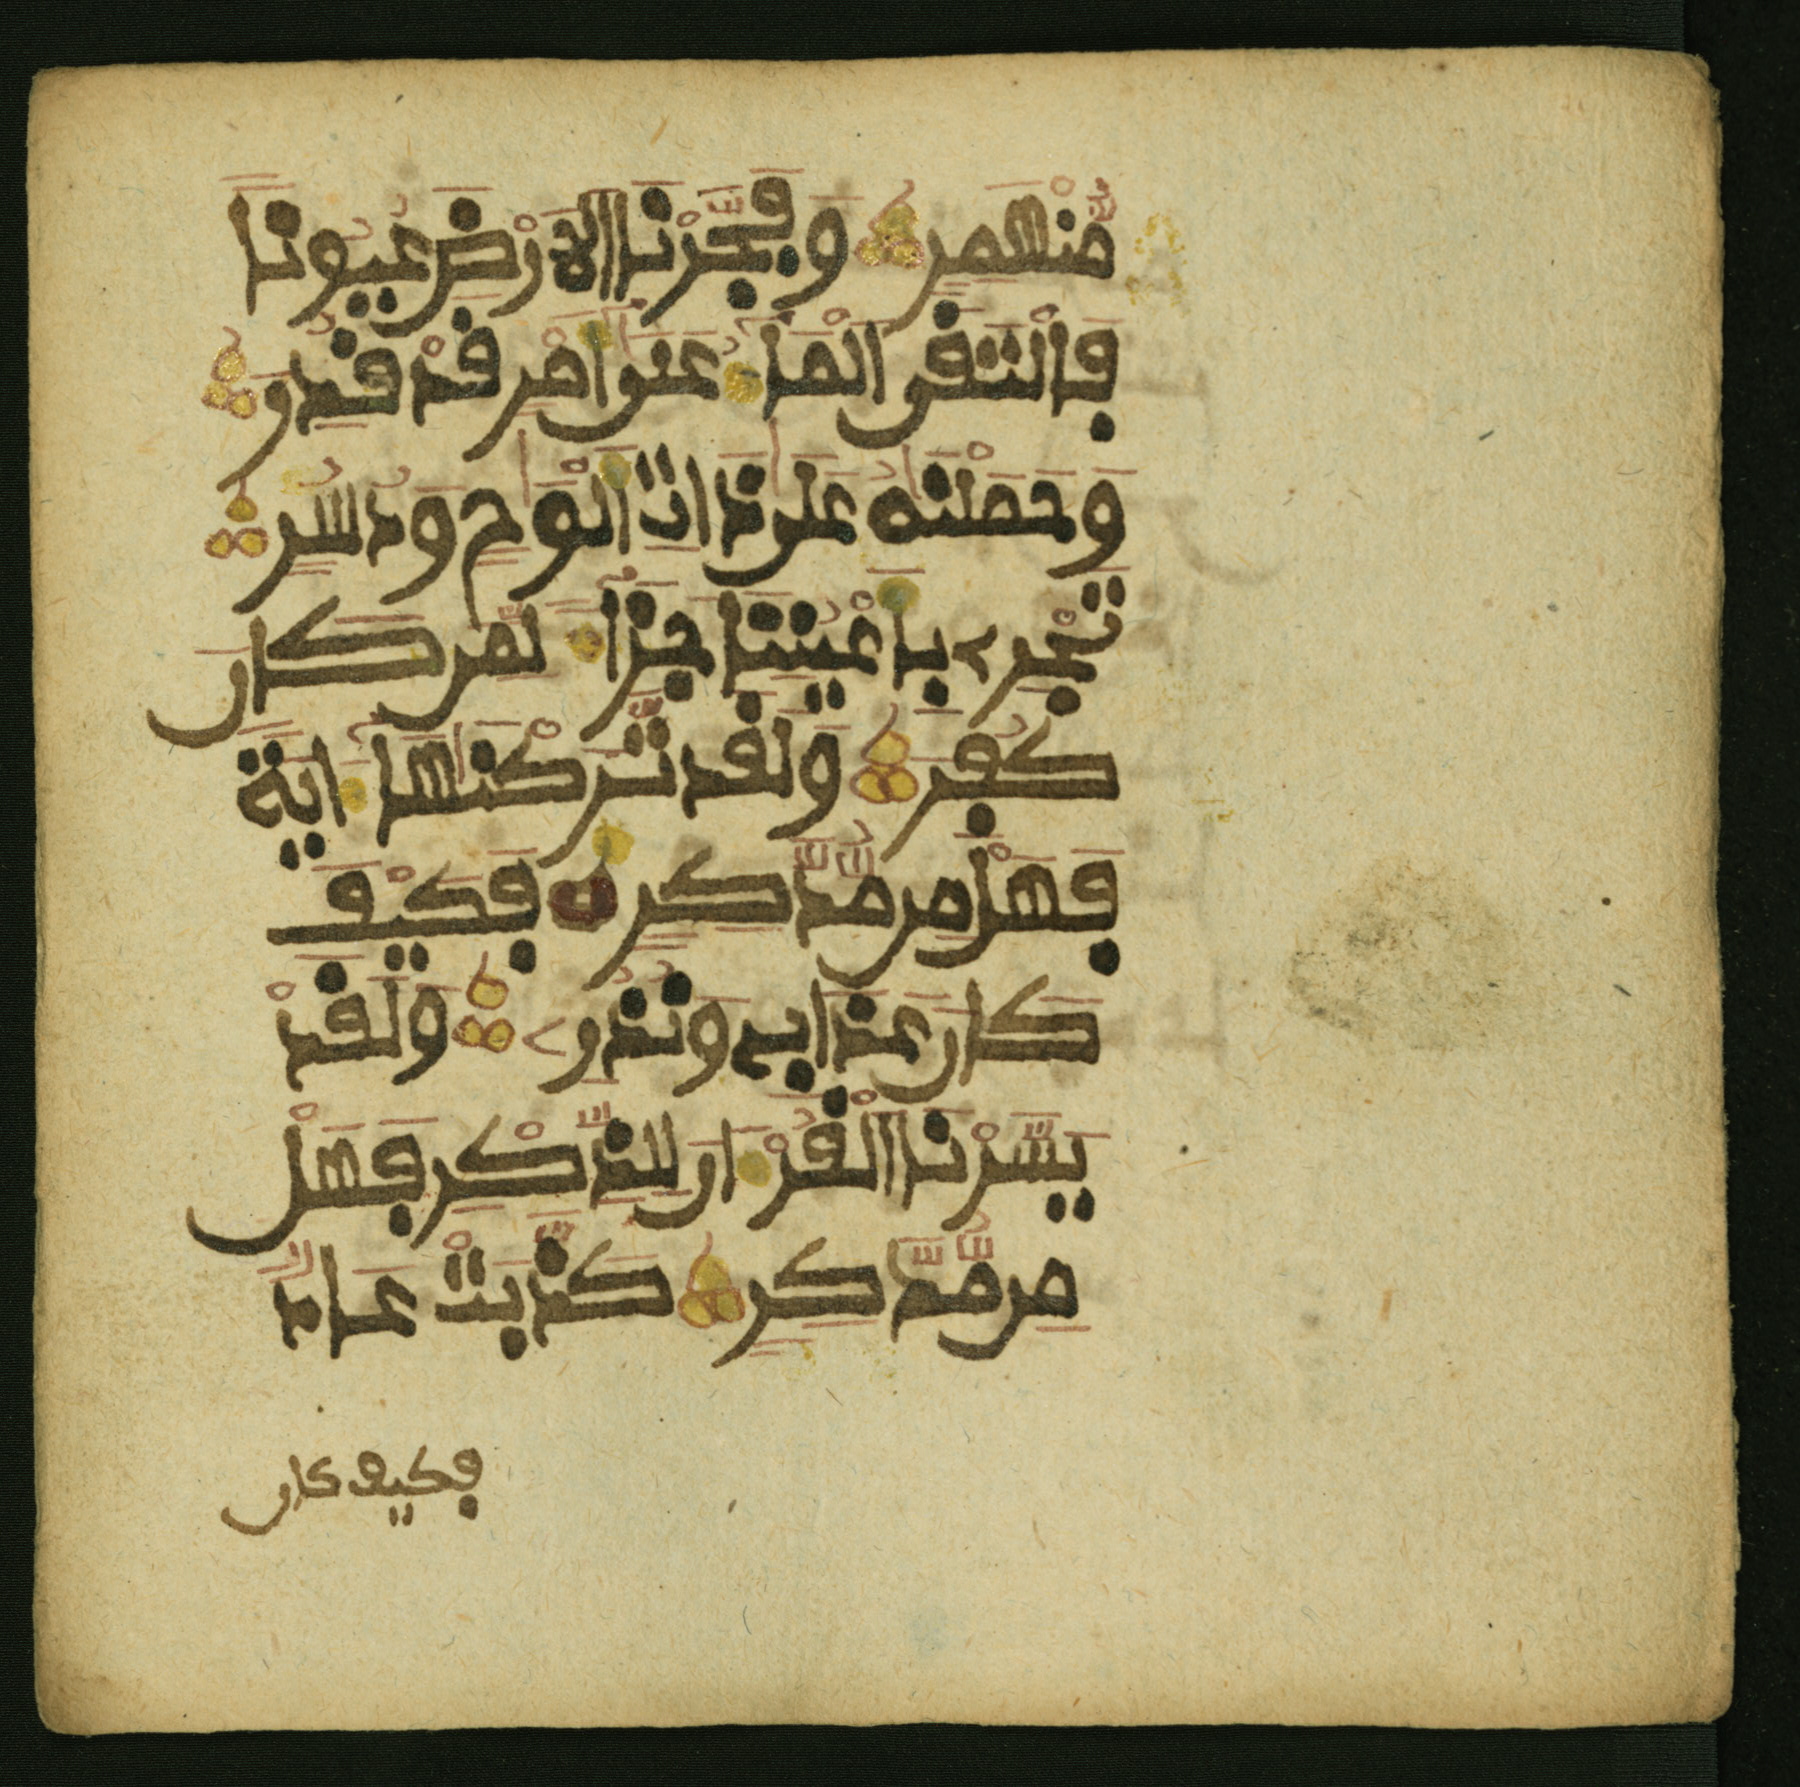 مُّنْهَمِرٍ وَفَجَّرْنَا الَارْضَ عُيُونًا
فَالْتَقَى الْمَآءُ عَلَىٰٓ أَمْرٍ قَدْ قُدِرَ
وَحَمَلْنَٰهُ عَلَىٰ ذَاتِ أَلْوَٰحٍ وَدُسُرٍ
تَجْرِے بِأَعْيُنِنَا جَزَآءً لِّمَن كَانَ
كُفِرَ وَلَقَد تَّرَكْنَٰهَآ ءَايَةً
فَهَلْ مِن مُّدَّكِرٍ فَكَيْفَ
كَانَ عَذَابِے وَنُذُرِے وَلَقَدْ
يَسَّرْنَا الْقُرْءَانَ لِلذِّكْرِ فَهَلْ
مِن مُّدَّكِرٍ كَذَّبَتْ عَادٌ
فكيف كان